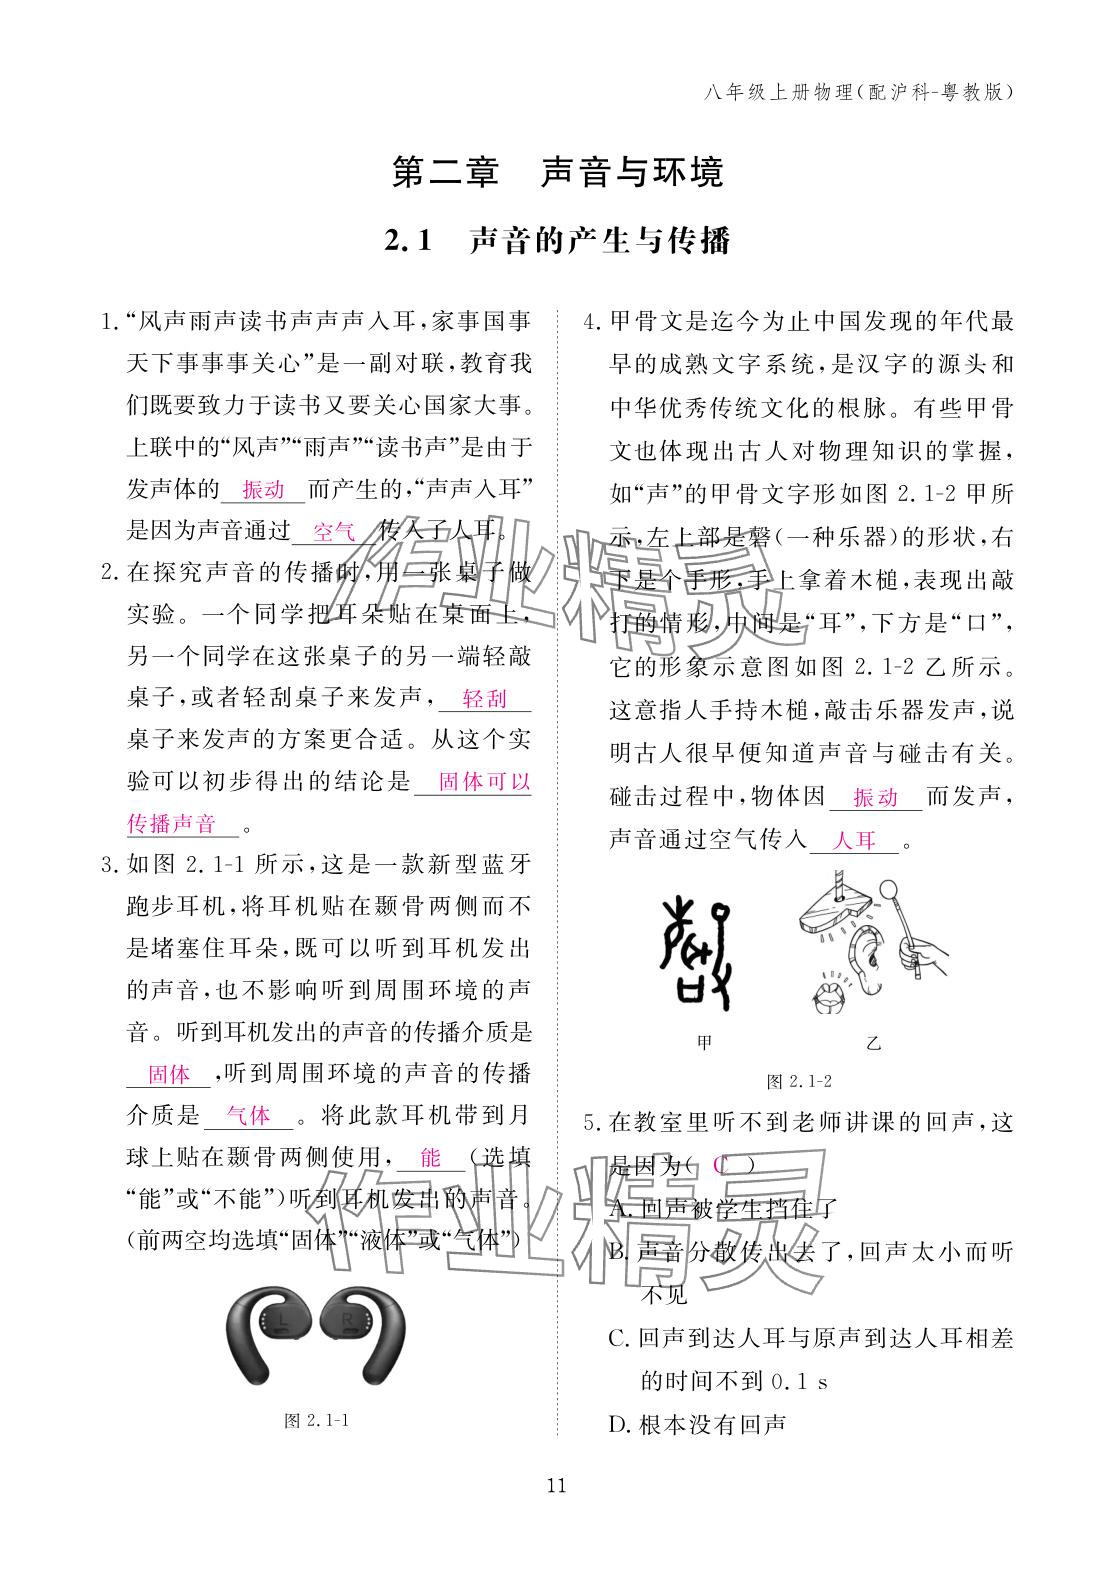 八年级上册物理(配沪科-粤教版)
第二章 声音与环境
2.1 声音的产生与传播
1.“风声雨声读书声声声入耳,家事国事
天下事事事关心”是一副对联,教育我
们既要致力于读书又要关心国家大事。
上联中的“风声”“雨声”“读书声”是由于
发声体的 振动 而产生的,“声声入耳”
是因为声音通过 空气 传入了人耳。
2.在探究声音的传播时,用一张桌子做
实验。一个同学把耳朵贴在桌面上,
另一个同学在这张桌子的另一端轻敲
桌子,或者轻刮桌子来发声, 轻刮
桌子来发声的方案更合适。从这个实
验可以初步得出的结论是 固体可以
传播声音 。
3.如图 2.1-1 所示,这是一款新型蓝牙
跑步耳机,将耳机贴在颞骨两侧而不
是堵塞住耳朵,既可以听到耳机发出
的声音,也不影响听到周围环境的声
音。听到耳机发出的声音的传播介质是
固体 ,听到周围环境的声音的传播
介质是 气体 。将此款耳机带到月
球上贴在颞骨两侧使用, 能 (选填
“能”或“不能”)听到耳机发出的声音。
(前两空均选填“固体”“液体”或“气体”)
L R
图 2.1-1
4.甲骨文是迄今为止中国发现的年代最
早的成熟文字系统,是汉字的源头和
中华优秀传统文化的根脉。有些甲骨
文也体现出古人对物理知识的掌握,
如“声”的甲骨文字形如图 2.1-2 甲所
示,左上部是磬(一种乐器)的形状,右
下是个手形,手上拿着木槌,表现出敲
打的情形,中间是“耳”,下方是“口”,
它的形象示意图如图 2.1-2 乙所示。
这意指人手持木槌,敲击乐器发声,说
明古人很早便知道声音与碰击有关。
碰击过程中,物体因 振动 而发声,
声音通过空气传入 人耳 。
甲 乙
图 2.1-2
5.在教室里听不到老师讲课的回声,这
是因为( C )
A.回声被学生挡住了
B.声音分散传出去了,回声太小而听
不见
C.回声到达人耳与原声到达人耳相差
的时间不到 0.1 s
D.根本没有回声
11
作业精灵
作业精灵